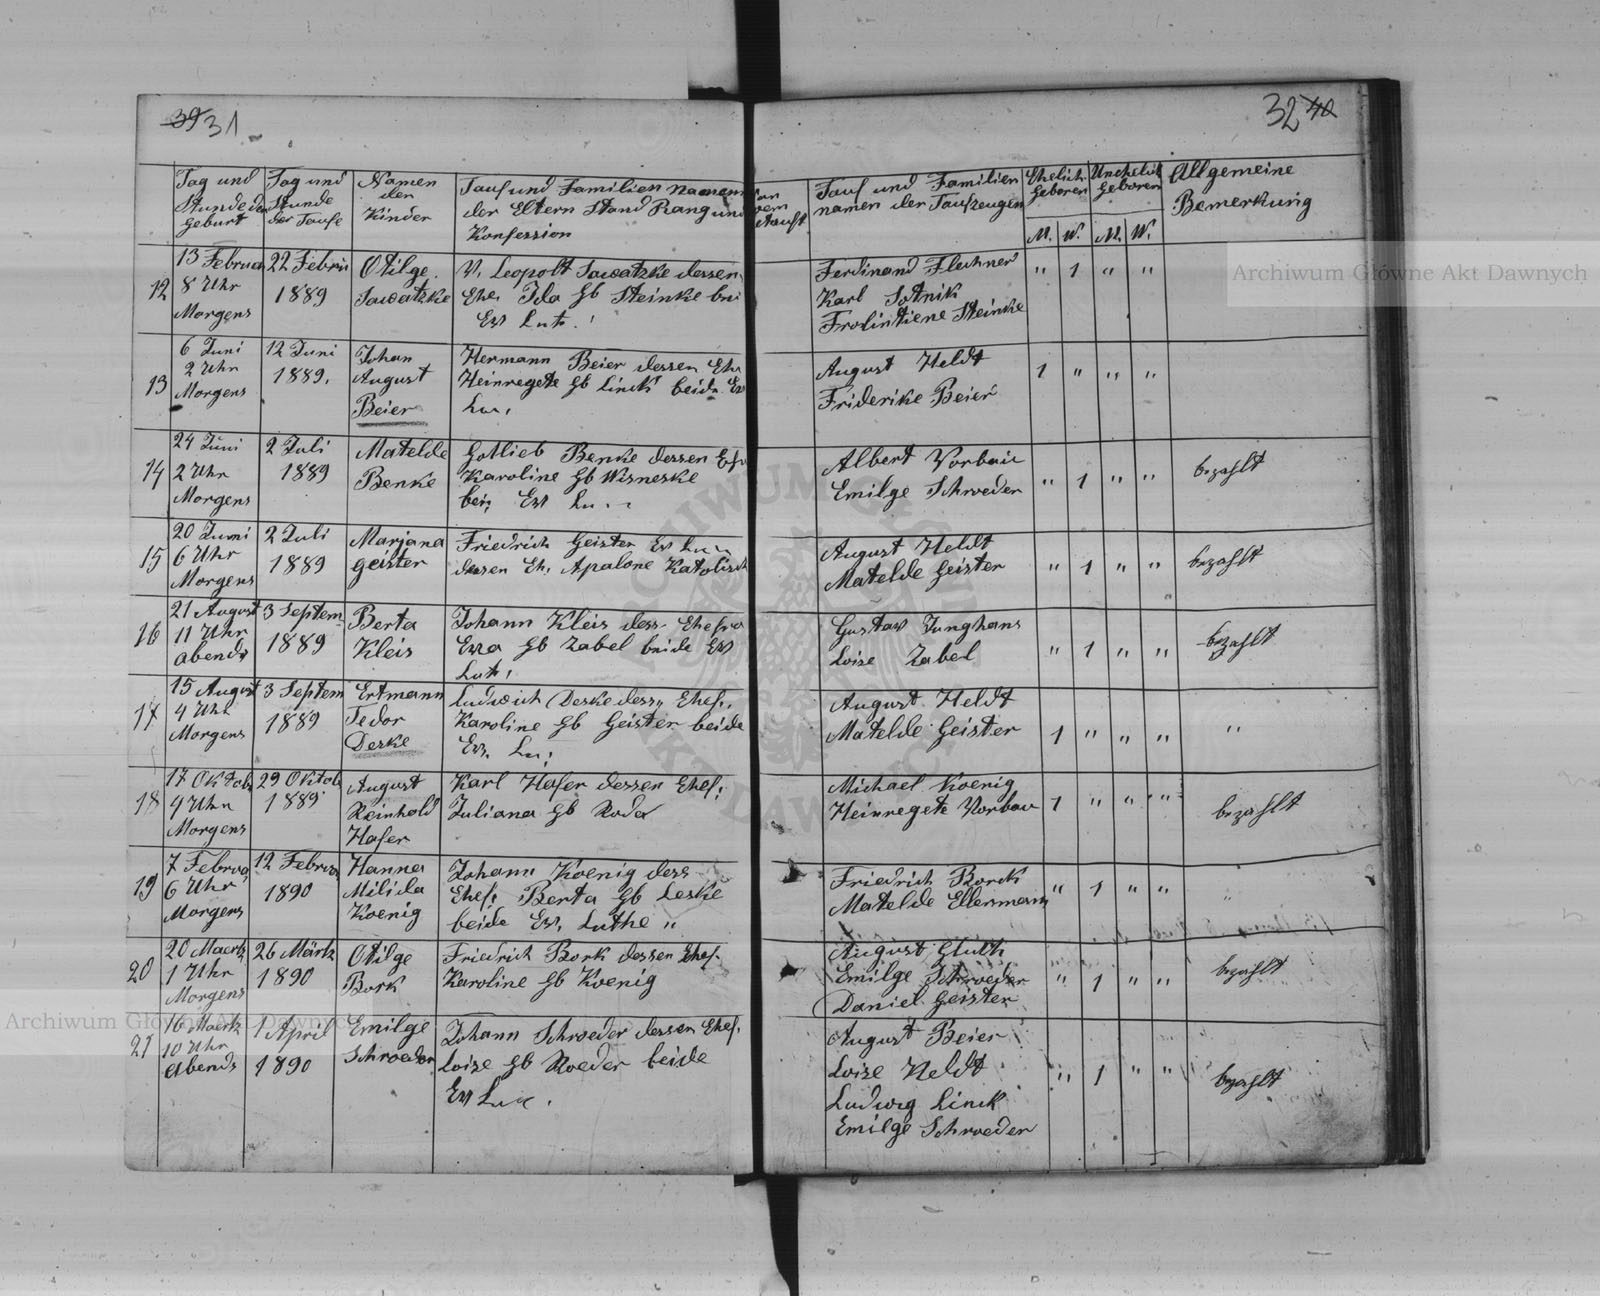 39 31
32 40
Tag und
Stunde der
Geburt
Tag und
Stunde
der Taufe
Namen
der
Kinder
Tauf und Familien namen
der Eltern Stand Rang und
Konfession
Tauf und Familien
namen der Taufzeugen
Ehelich
Geboren
Unehelich
Geboren
M. W. M. W.
Allgemeine
Bemerkung
12
13 Februa
8 Uhr
Morgens
22 Febru
1889
Otilge
Sawatzke
V. Leopolt Sawatzke dessen
Ehe. Ida Gb Steinke bei
Ev Luth.
Ferdinand Flechner
Karl Sotnik
Frolintiene Steinke
" 1 " "
13
6 Juni
2 Uhr
Morgens
12 Juni
1889.
Johan
August
Beier
Hermann Beier dessen Ehe
Heinregete Gb Linck beide Ev
Lu.
August Heldt
Friderike Beier
1 " " "
14
24 Juni
2 Uhr
Morgens
2 Juli
1889
Matelde
Benke
Gotlieb Benke dessen Ehf
Karoline Gb Wisneske
bei; Ev Lu
Albert Vorbau
Emilge Schroeder
" 1 " "
bezahlt
15
20 Juni
6 Uhr
Morgens
2 Juli
1889
Marjana
Geister
Friedrich Geister Ev Lu
dessen Eh. Apalone Katolisch
August Heldt
Matelde Geister
" 1 " "
bezahlt
16
21 August
11 Uhr
Abends
3 Septem
1889
Berta
Kleis
Johann Kleis dess. Ehefra
Eva Gb Zabel beide Ev
Luth.
Gustav Junghans
Loise Zabel
" 1 " "
bezahlt
17
15 August
4 Uhr
Morgens
3 Septem
1889
Ertmann
Tedor
Deske
Ludwich Deske dess, Ehef.
Karoline Gb Geister beide
Ev. Lu;
August Heldt
Matelde Geister
1 " " "
"
18
17 Oktob
4 Uhr
Morgens
29 Oktob
1889
August
Reinhold
Hafer
Karl Hafer dessen Ehef.
Juliana Gb Roder
Michael Koenig
Heinregete Vorbau
1 " " "
bezahlt
19
7 Februa
6 Uhr
Morgens
12 Februa
1890
Hanna
Milida
Koenig
Johann Koenig dess
Ehef. Berta Gb Leske
beide Ev. Luthe "
Friedrich Borck
Matelde Ellermann
" 1 " "
"
20
20 Maertz
1 Uhr
Morgens
26 Märtz
1890
Otilge
Bork
Friedrich Bork dessen Ehef.
Karoline Gb Koenig
August Gluth
Emilge Schroeder
Daniel Geister
" 1 " "
bezahlt
21
16 Maertz
10 Uhr
Abends
1 April
1890
Emilge
Schroeder
Johann Schroeder dessen Ehef.
Loise Gb Roeder beide
Ev Lu
August Beier
Loise Heldt
Ludwig Linck
Emilge Schroeder
" 1 " "
bezahlt
Archiwum Główne Akt Dawnych
Archiwum Główne Akt Dawnych